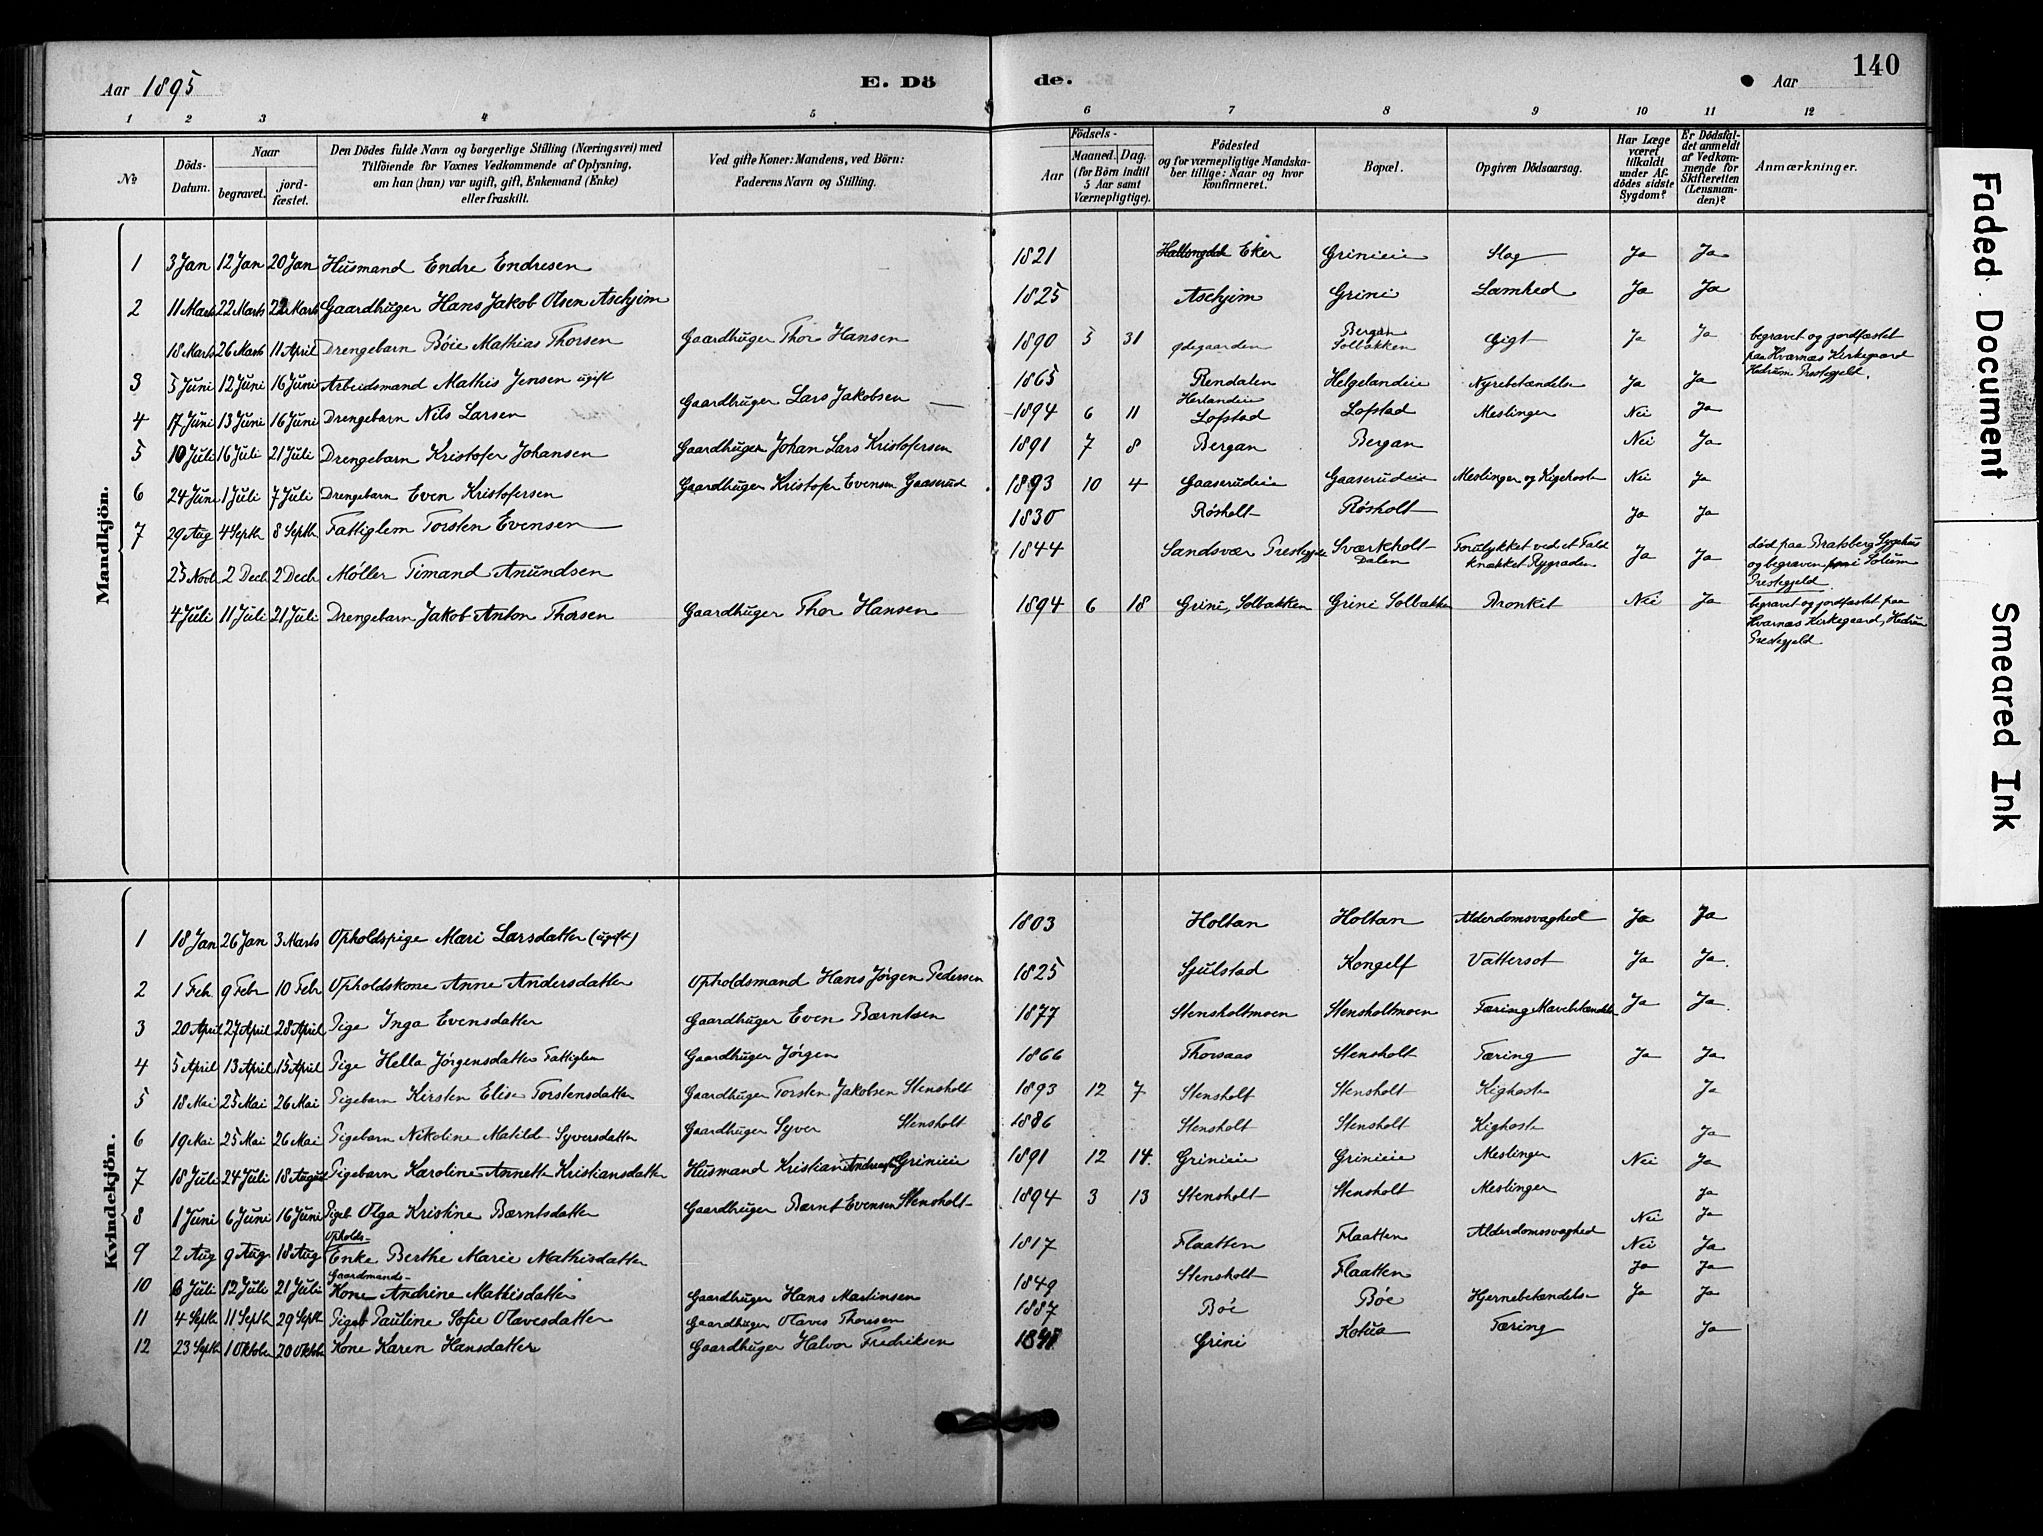 Aar 1895 E. Dö de. Aar 140
1 2 3 4 5 6 7 8 9 10 11 12
№ Döds-Datum. Naar begravet. jord-fæstet. Den Dödes fulde Navn og borgerlige Stilling (Næringsvei) med Tilföiende for Voxnes Vedkommende af Oplysning, om han (hun) var ugift, gift, Enkemand (Enke) eller fraskilt. Ved gifte Koner: Mandens, ved Börn: Faderens Navn og Stilling. Födsels- Aar Maaned. Dag. (for Börn indtil 5 Aar samt Værnepligtige). Födested og for værnepligtige Mandskaber tillige: Naar og hvor konfirmeret. Bopæl. Opgiven Dödsaarsag. Har Læge været tilkaldt under Afdödes sidste Sygdom? Er Dödsfaldet anmeldt af Vedkommende for Skifteretten (Lensmanden)? Anmærkninger.
Mandkjön.
1 3 Jan 12 Jan 20 Jan Husmand Endre Endresen 1821 Eker Grinieie Slag Ja Ja
2 11 Marts 22 Marts 22 Marts Gaardbruger Hans Jakob Olsen Aschjim 1825 Aschjim Grini Lamhed Ja Ja
18 Marts 26 Marts 11 April Drengebarn Böie Mathias Thorsen Gaardbruger Thor Hansen 1890 5 31 Ødegaarden Bergan Solbakken Gigt Ja Ja begravet og jordfæstet paa Hvarnæs Kirkegaard Hedrum Prestegjeld.
3 5 Juni 12 Juni 16 Juni Arbeidsmand Mathis Jensen ugift 1865 Rendalen Helgelandeie Nyrebetændelse Ja Ja
4 17 Juni 13 Juni 16 Juni Drengebarn Nils Larsen Gaardbruger Lars Jakobsen 1894 6 11 Herlandeie Lofstad Lofstad Meslinger Nei Ja
5 10 Juli 16 Juli 21 Juli Drengebarn Kristofer Johansen Gaardbruger Johan Lars Kristofersen 1891 7 8 Bergan Bergan Nei Ja
6 24 Juni 1 Juli 7 Juli Drengebarn Even Kristofersen Gaardbruger Kristofer Evensen Gaaserud 1893 10 4 Gaaserudeie Gaaserudeie Meslinger og Kighoste Nei Ja
7 29 Aug 4 Septb 8 Septb Fattiglem Torsten Evensen 1830 Røsholt Røsholt Ja Ja
25 Novb 2 Decb 2 Decb Møller Timand Anundsen 1844 Sandsvær Prestegjeld Sværkholt Dalen Forulykket ved et Fald knækket Rygraden Ja Ja død paa Bratsberg Sygehus og begraven i Solum Prestegjeld
4 Juli 11 Juli 21 Juli Drengebarn Jakob Anton Thorsen Gaardbruger Thor Hansen 1894 6 18 Grini, Solbakken Grini Solbakken Bronkit Nei Ja begravet og jordfæstet paa Hvarnæs Kirkegaard, Hedrum Prestegjeld
Kvindekjön.
1 18 Jan 26 Jan 3 Marts Opholdspige Mari Larsdatter (ugift) 1803 Holtan Holtan Alderdomsvaghed Ja Ja
2 1 Feb. 9 Febr 10 Feb Opholdskone Anne Andersdatter Opholdsmand Hans Jørgen Pedersen 1825 Sjulstad Kongelf Vattersot Ja Ja.
3 20 April 27 April 28 April Pige Inga Evensdatter Gaardbruger Even Bærntsen 1877 Stensholtmoen Stensholtmoen Tæring Mavebetændelse Ja Ja.
4 5 April 13 April 15 April Pige Hella Jørgensdatter Fattiglem Gaardbruger Jørgen 1866 Thorsaas Stensholt Tæring Ja Ja
5 18 Mai 25 Mai 26 Mai Pigebarn Kirsten Elise Torstensdatter Gaardbruger Torsten Jakobsen Stensholt 1893 12 7 Stensholt Stensholt Kighoste Ja
6 19 Mai 25 Mai 26 Mai Pigebarn Nikoline Matilde Syversdatter Gaardbruger Syver Stensholt 1886 Stensholt Stensholt Kighoste Ja
7 18 Juli 24 Juli 18 August Pigebarn Karoline Annette Kristiansdatter Husmand Kristian Andreas Grinieie 1891 12 14. Grinieie Grinieie Meslinger Nei Ja
8 1 Juni 6 Juni 16 Juni Pigeb. Olga Kristine Bærntsdatter Gaardbruger Bærnt Evensen Stensholt 1894 3 13 Stensholt Stensholt Meslinger Ja
Nei Ja
9 2 Aug 9 Aug. 18 Aug Opholds- Enke Berthe Marie Mathisdatter 1817 Flaatten Flaatten Alderdomssvaghed Nei Ja
10 6 Juli 12 Juli 21 Juli Gaardmands- Kone Andrine Mathisdatter Gaardbruger Hans Martinsen 1849 Stensholt Flaatten Ja Ja
11 4 Septb 11 Septb 29 Septb Pigeb Pauline Sofie Olavesdatter Gaardbruger Olaves Thoresen 1887 Böe Böe Hjernebetændelse Ja Ja
12 23 Septb 1 Oktober 20 Oktbr Kone Karen Hansdatter Gaardbruger Halvor Fredriksen Grini Kolua Tæring Ja
Faded Document
Smeared Ink